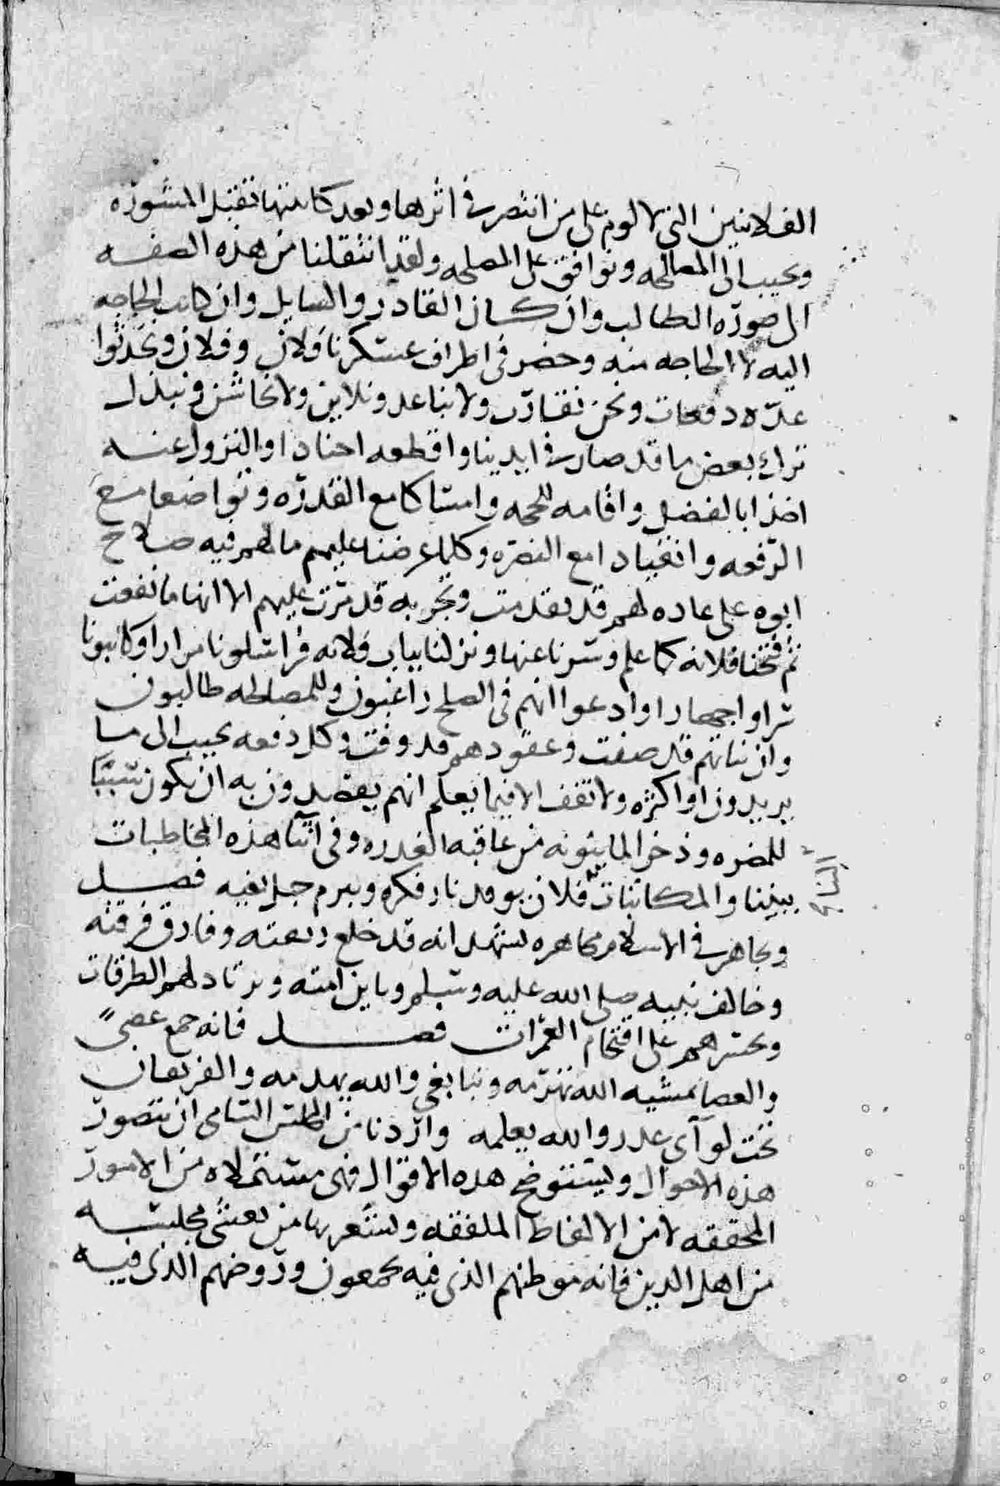 الفلانيين التي لا لوم على من انتصر في اثرها وبعد كاينتها تقبل المشورة
ونجيب الى المصالحه ونوافق على المصلحه ولقد انتقلنا من هذه الصفه
الى صورة الطالب وان كان القادر والسايل وان كانت الحاجه
اليه لا الحاجه منه وحضر في اطراف عسكرنا فلان وفلان وتحدثوا
عدة دفعات ونحن نقارب ولا نباعد ونلاين ولا نخاشن ونبذل
ترك بعض ما قد صار في ايدينا واقطعه اجنادا والنزول عنه
اخذا بالفضل واقامه للحجه وامساكا مع القدرة وتواضعا مع
الرفعه وانقيادا مع النصرة وكلما عرضنا عليهم ما لهم فيه صلاح
ابوه على عاده لهم قد تقدمت وتجربه قد مرت عليهم الا انها ما نفعت
ثم فتحنا فلانه كما علم وسرنا عنها ونزلنا بباب فلانه فراسلونا مرارا وكاتبونا
سرا وجهارا وادعوا انهم في الصلح راغبون وللمصلحه طالبون
وان نياتهم قد صفت وعقودهم قد وفت وكل دفعه نجيب الى ما
يريدون او اكثره ولا نقف الا فيما يعلم انهم يقصدون به ان يكون سببا
للمضره وذخرا لما ينوونه من عاقبه الغدره وفي اثنا هذه المخاطبات
بيننا والمكاتبات فلان يوقد نار فكره ويبرم حبل بغيه فصل
ويجاهر في الاسلام مجاهره يشهد انه قد خلع ربقته وفارق فرقته
وخالف نبيه صلى الله عليه وسلم وباين امته ويرتاد لهم الطرقات
ويجسرهم على اقتحام الغمرات فصل فانه جمع عصى
والعصا بمشيه الله تهزمه وبنا بغى والله يهدمه والفريقان
تحت لوآى غدر والله يعلمه واردنا من المجلس السامى ان يتصور
هذه الاحوال ويستوضح هذه الاقوال فهى مستملاه من الامور
المحققه لا من الالفاظ الملفقه ويشعر بها من يغشى مجلسه
من اهل الدين فانه موطنهم الذى فيه يجمعون وروضهم الذى فيه